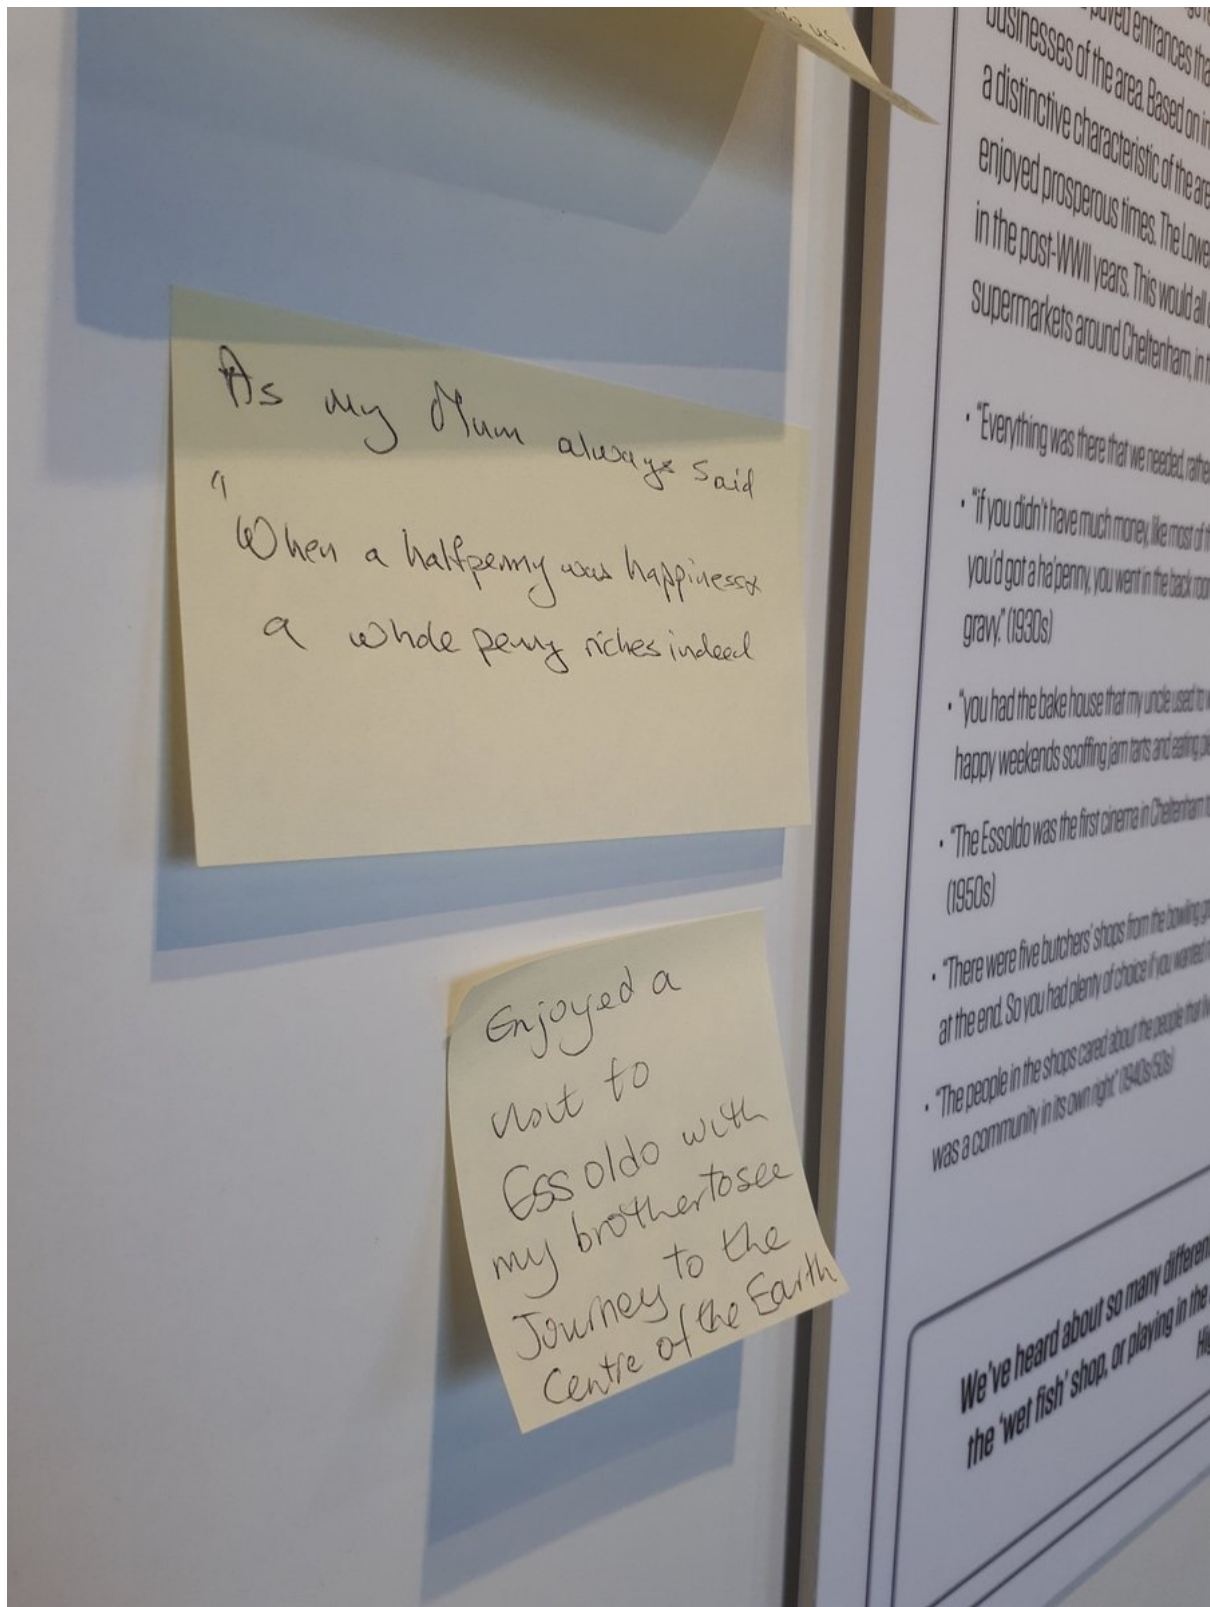 to us.
As my Mum always said
"When a halfpenny was happiness &
a whole penny riches indeed
Enjoyed a
visit to
Essoldo with
my brother to see
Journey to the
Centre of the Earth
paved entrances
businesses of the area. Based on
a distinctive characteristic of the
enjoyed prosperous times. The
in the post-WWII years. This would all
supermarkets around Cheltenham, in
• "Everything was there that we needed,
• "if you didn't have much money, like most of
you'd got a ha'penny, you went in the back
gravy." (1930s)
• "you had the bake house that my uncle used to
happy weekends scoffing jam tarts and eating
• "The Essoldo was the first cinema in Cheltenham
(1950s)
• "There were five butchers' shops from the bowling
at the end. So you had plenty of choice if you wanted
• "The people in the shops cared about the people that
was a community in its own right." (1940s/50s)
We've heard about so many
the 'wet fish' shop, or playing in the